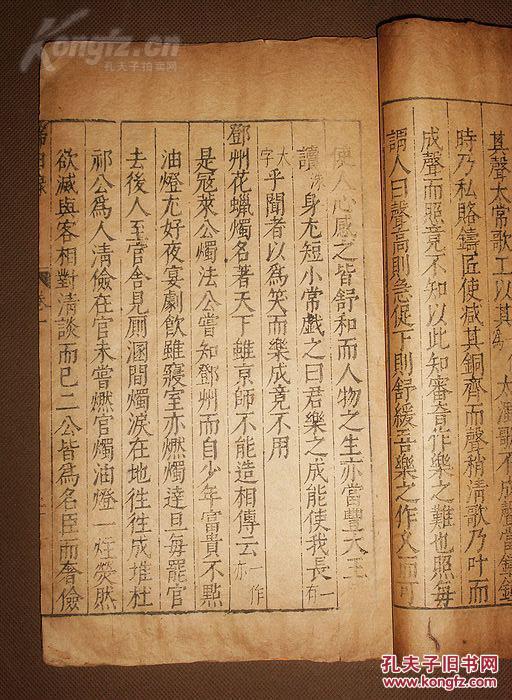 其聲太常歌工以其爲
時乃私賂鑄匠使減其銅齊而聲稍清歌乃叶而
成聲而照竟不知以此知審音作樂之難也照每
謂人曰聲高則急促下則舒緩吾樂之作久而可
使人心感之皆舒和而人物之生亦當豐大王
讀洙身尤短小常戲之曰君樂之成能使我長一有
大字乎聞者以爲笑而樂成竟不用
鄧州花蠟燭名著天下雖京師不能造相傳云一作亦
是寇萊公燭法公嘗知鄧州而自少年富貴不點
油燈尤好夜宴劇飲雖寢室亦燃燭達旦每罷官
去後人至官舍見廁溷間燭淚在地往往成堆杜
祁公爲人清儉在官未嘗燃官燭油燈一炷熒然
欲滅與客相對清談而已二公皆爲名臣而奢儉
Kongfz.cn
孔夫子拍卖网
孔夫子旧书网
www.kongfz.com